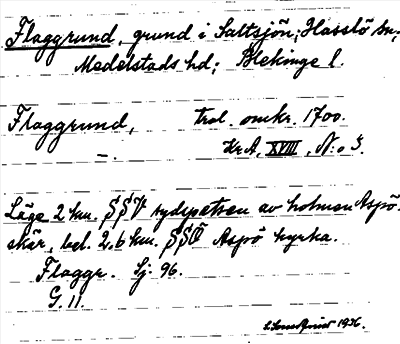 Flaggrund, grund i Saltsjön; Hasslö sn,
Medelstads hd; Blekinge l.
Flaggrund, trol. omkr. 1700.
–. KrA, XVIII, N:o 3.
Läge 2 km. SSV sydspetsen av holmen Aspö-
skär, bel. 2,6 km. SSÖ Aspö kyrka.
Flaggr. Sj. 96.
G. 11.
1936.